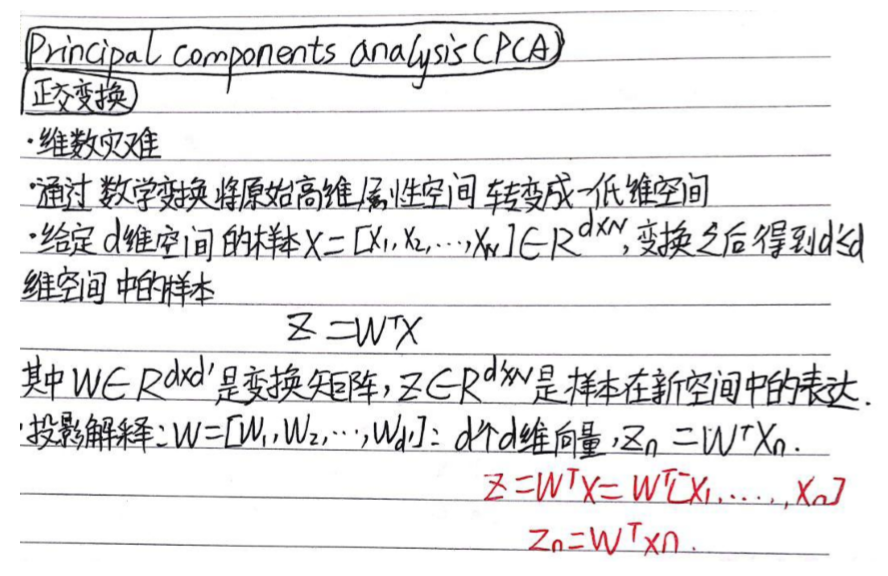 Principal components analysis (PCA)
正交变换
·维数灾难
·通过数学变换将原始高维属性空间转变成一低维空间
·给定d维空间的样本X=[x₁,x₂,…,x_N]∈R^{d×N},变换之后得到d'≤d
维空间中的样本
Z=WᵀX
其中W∈R^{d×d'}是变换矩阵,Z∈R^{d'×N}是样本在新空间中的表达.
·投影解释:W=[W₁,W₂,…,W_{d'}]:d'个d维向量,Zₙ=WᵀXₙ.
Z=WᵀX=Wᵀ[X₁,....,Xₙ]
Zₙ=Wᵀxₙ.